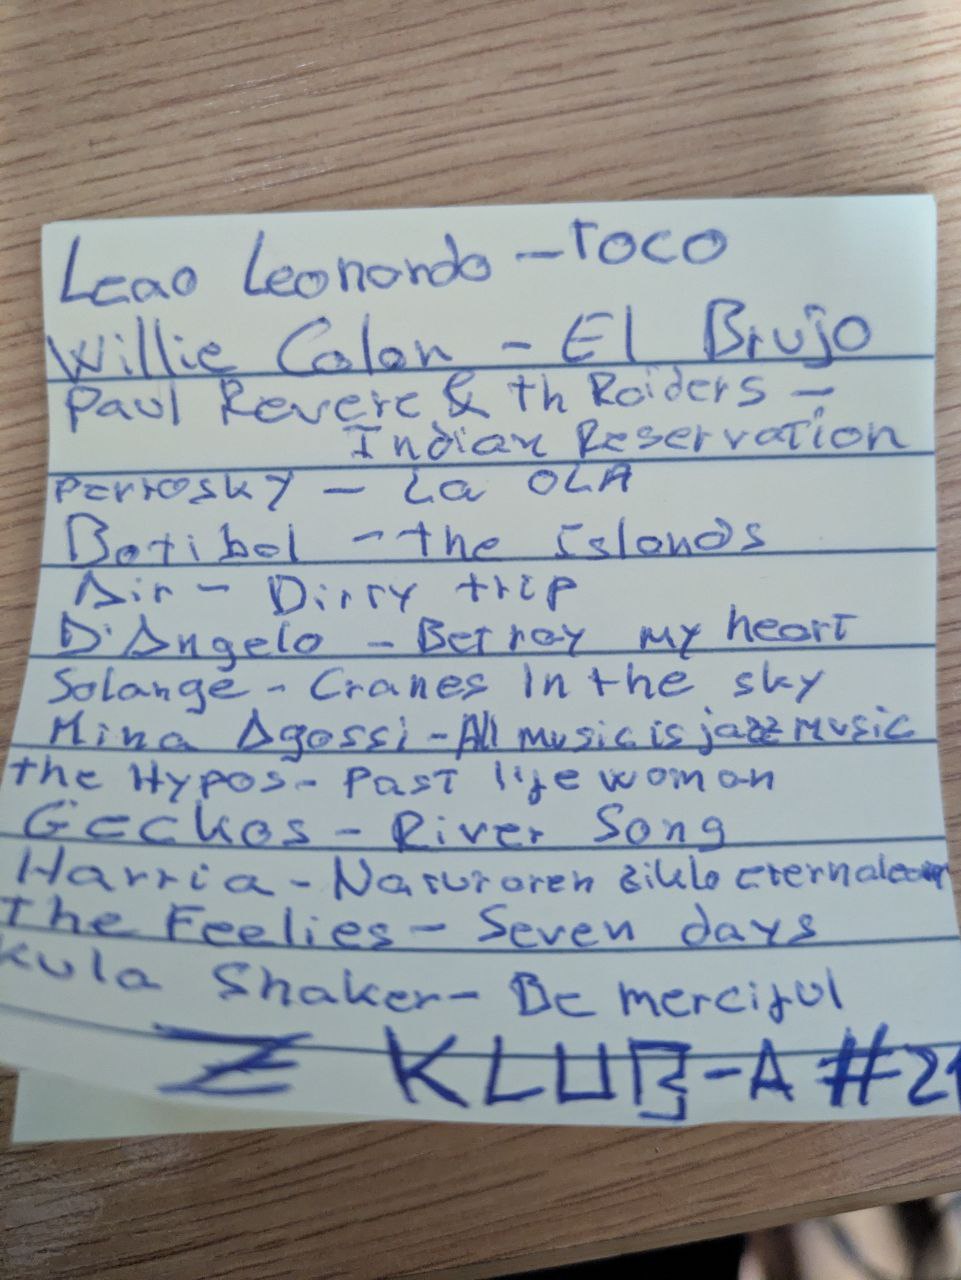 Leao Leonardo - Toco
Willie Colon - El Brujo
Paul Revere & th Raiders -
Indian Reservation
Perrosky - La OLA
Botibol - the Islands
Air - Dirty trip
D'Angelo - Betray my heart
Solange - Cranes In the sky
Mina Agossi - All music is jazz music
the Hypos - Past life woman
Geckos - River Song
Harria - Naturaren ziklo
The Feelies - Seven days
Kula Shaker - Be merciful
Z KLUB-A #21